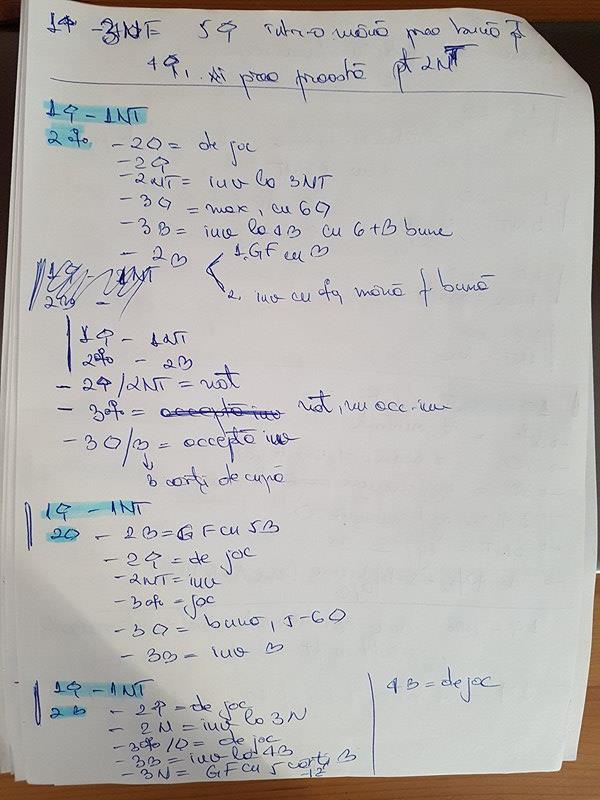 1♠ - 3NT = 5♠ într-o mână prea bună pt
4♠, și prea proastă pt 2NT
1♠ - 1NT
2♣ - 2♦ = de joc
- 2♠
- 2NT = inv la 3NT
- 3♦ = max, cu 6♦
- 3♥ = inv la 4♥ cu 6+♥ bune
- 2♥ 1. GF cu ♥
2. inv cu mână f bună
1♠ - 1NT
2♣ - 2♥
- 2♠/2NT = nat
- 3♣ = acceptă inv nat, nu acc. inv
- 3♦/♥ = acceptă inv
3 cărți de cupă
1♠ - 1NT
2♦ - 2♥ = GF cu 5♥
- 2♠ = de joc
- 2NT = inv
- 3♣ = joc
- 3♦ = bună, 5-6♦
- 3♥ = inv ♥
1♠ - 1NT
2♥ - 2♠ = de joc
- 2N = inv la 3N
- 3♣/♦ = de joc
- 3♥ = inv la 4♥
- 3N = GF cu 5 cărți ♥
4♥ = de joc